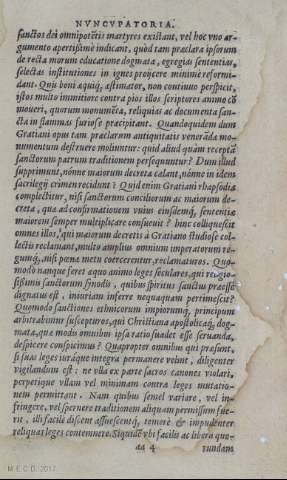 NVNCVPATORIA.
sanctos dei omnipotētis martyres existant, vel hoc vno ar-
gumento apertissimè indicant, quòd tam præclara ipsorum
de recta morum educatione dogmata, egregias sententias,
selectas institutiones in ignes projicere minimè reformi-
dant. Quis boni æquiq́; æstimator, non continuo perspicit,
istos multo immitiore contra pios illos scriptores animo cō
moueri, quorum monumēta, reliquias ac documenta san-
cta in flammas furiosè precipitant. Quandoquidem dum
Gratiani opus tam præclarum antiquitatis venerādæ mo-
numentum destruere moliuntur: quid aliud quàm receptā
sanctorum patrum traditionem persequuntur? Dum illud
supprimunt, nónne maiorum decreta calant, nónne in idem
sacrilegij crimen recidunt? Quid enim Gratiani rhapsodia
complectitur, nisi sanctorum conciliorum ac maiorum de-
creta, quæ ad confirmationem vnius eiusdemq́; sententiæ
maiorem semper multiplicare consueuit? hinc colliquescit
omnes illos, qui maiorum decretis à Gratiano studiosè col-
lectis reclamant, multo amplius omnium imperatorum re-
gumq́; nisi pœnæ metu coercerentur, reclamaturos. Quo-
modo nanque feret æquo animo leges seculares, qui religio-
sissimis sanctorum synodis, quibus spiritus sanctus præesse
dignatus est, iniuriam inferre nequaquam pertimescit?
Quomodo sanctiones ethnicorum impiorumq́; principum
arbitrabimur suscepturos, qui Christiana apostolicaq́; dog-
mata, quæ modis omnibus ipsa ratio suadet esse seruanda,
despicere conspicimus? Quapropter omnibus qui præsunt,
si suas leges iuraq́ue integra permanere velint, diligenter
vigilandum est: ne vlla ex parte sacros canones violari,
perpetique vllam vel minimam contra leges mutatio-
nem permittant. Nam quibus semel variare, vel in-
fringere, vel spernere traditionem aliquam permissum fue-
rit, illi facilè discent assuescentq́; temerè & impudenter
reliquas leges contemnere. Siquidē vbi facilis ac libera quo-
aa 4
rundam
M.E.C.D. 2017